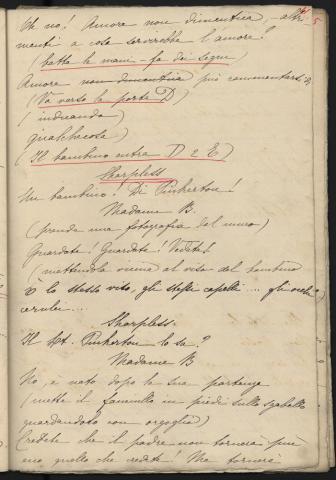 Oh no! Amore non dimentica, altri
menti a cosa servirebbe l'amore?
(batte le mani - fa dei segni)
Amore non dimentica può rammentarsi
(Va verso la porta D)
(indicando)
qualchecosa)
(Il bambino entra D 2 E)
Sharpless
Un bambino! Di Pinkerton!
Madame B.
(prende una fotografia dal muro)
Guardate! Guardate! Vedete!
(mettendola vicina al viso del bambino
lo stesso viso, gli stessi capelli.... gli occhi
cerulei....
Sharpless
Il Lt. Pinkerton lo sa?
Madame B
No, è nato dopo la sua partenza
(mette il fanciullo in piedi sullo sgabello
guardandolo con orgoglio)
Credete che il padre non tornerà più
ma quello che credete! Ma tornerà